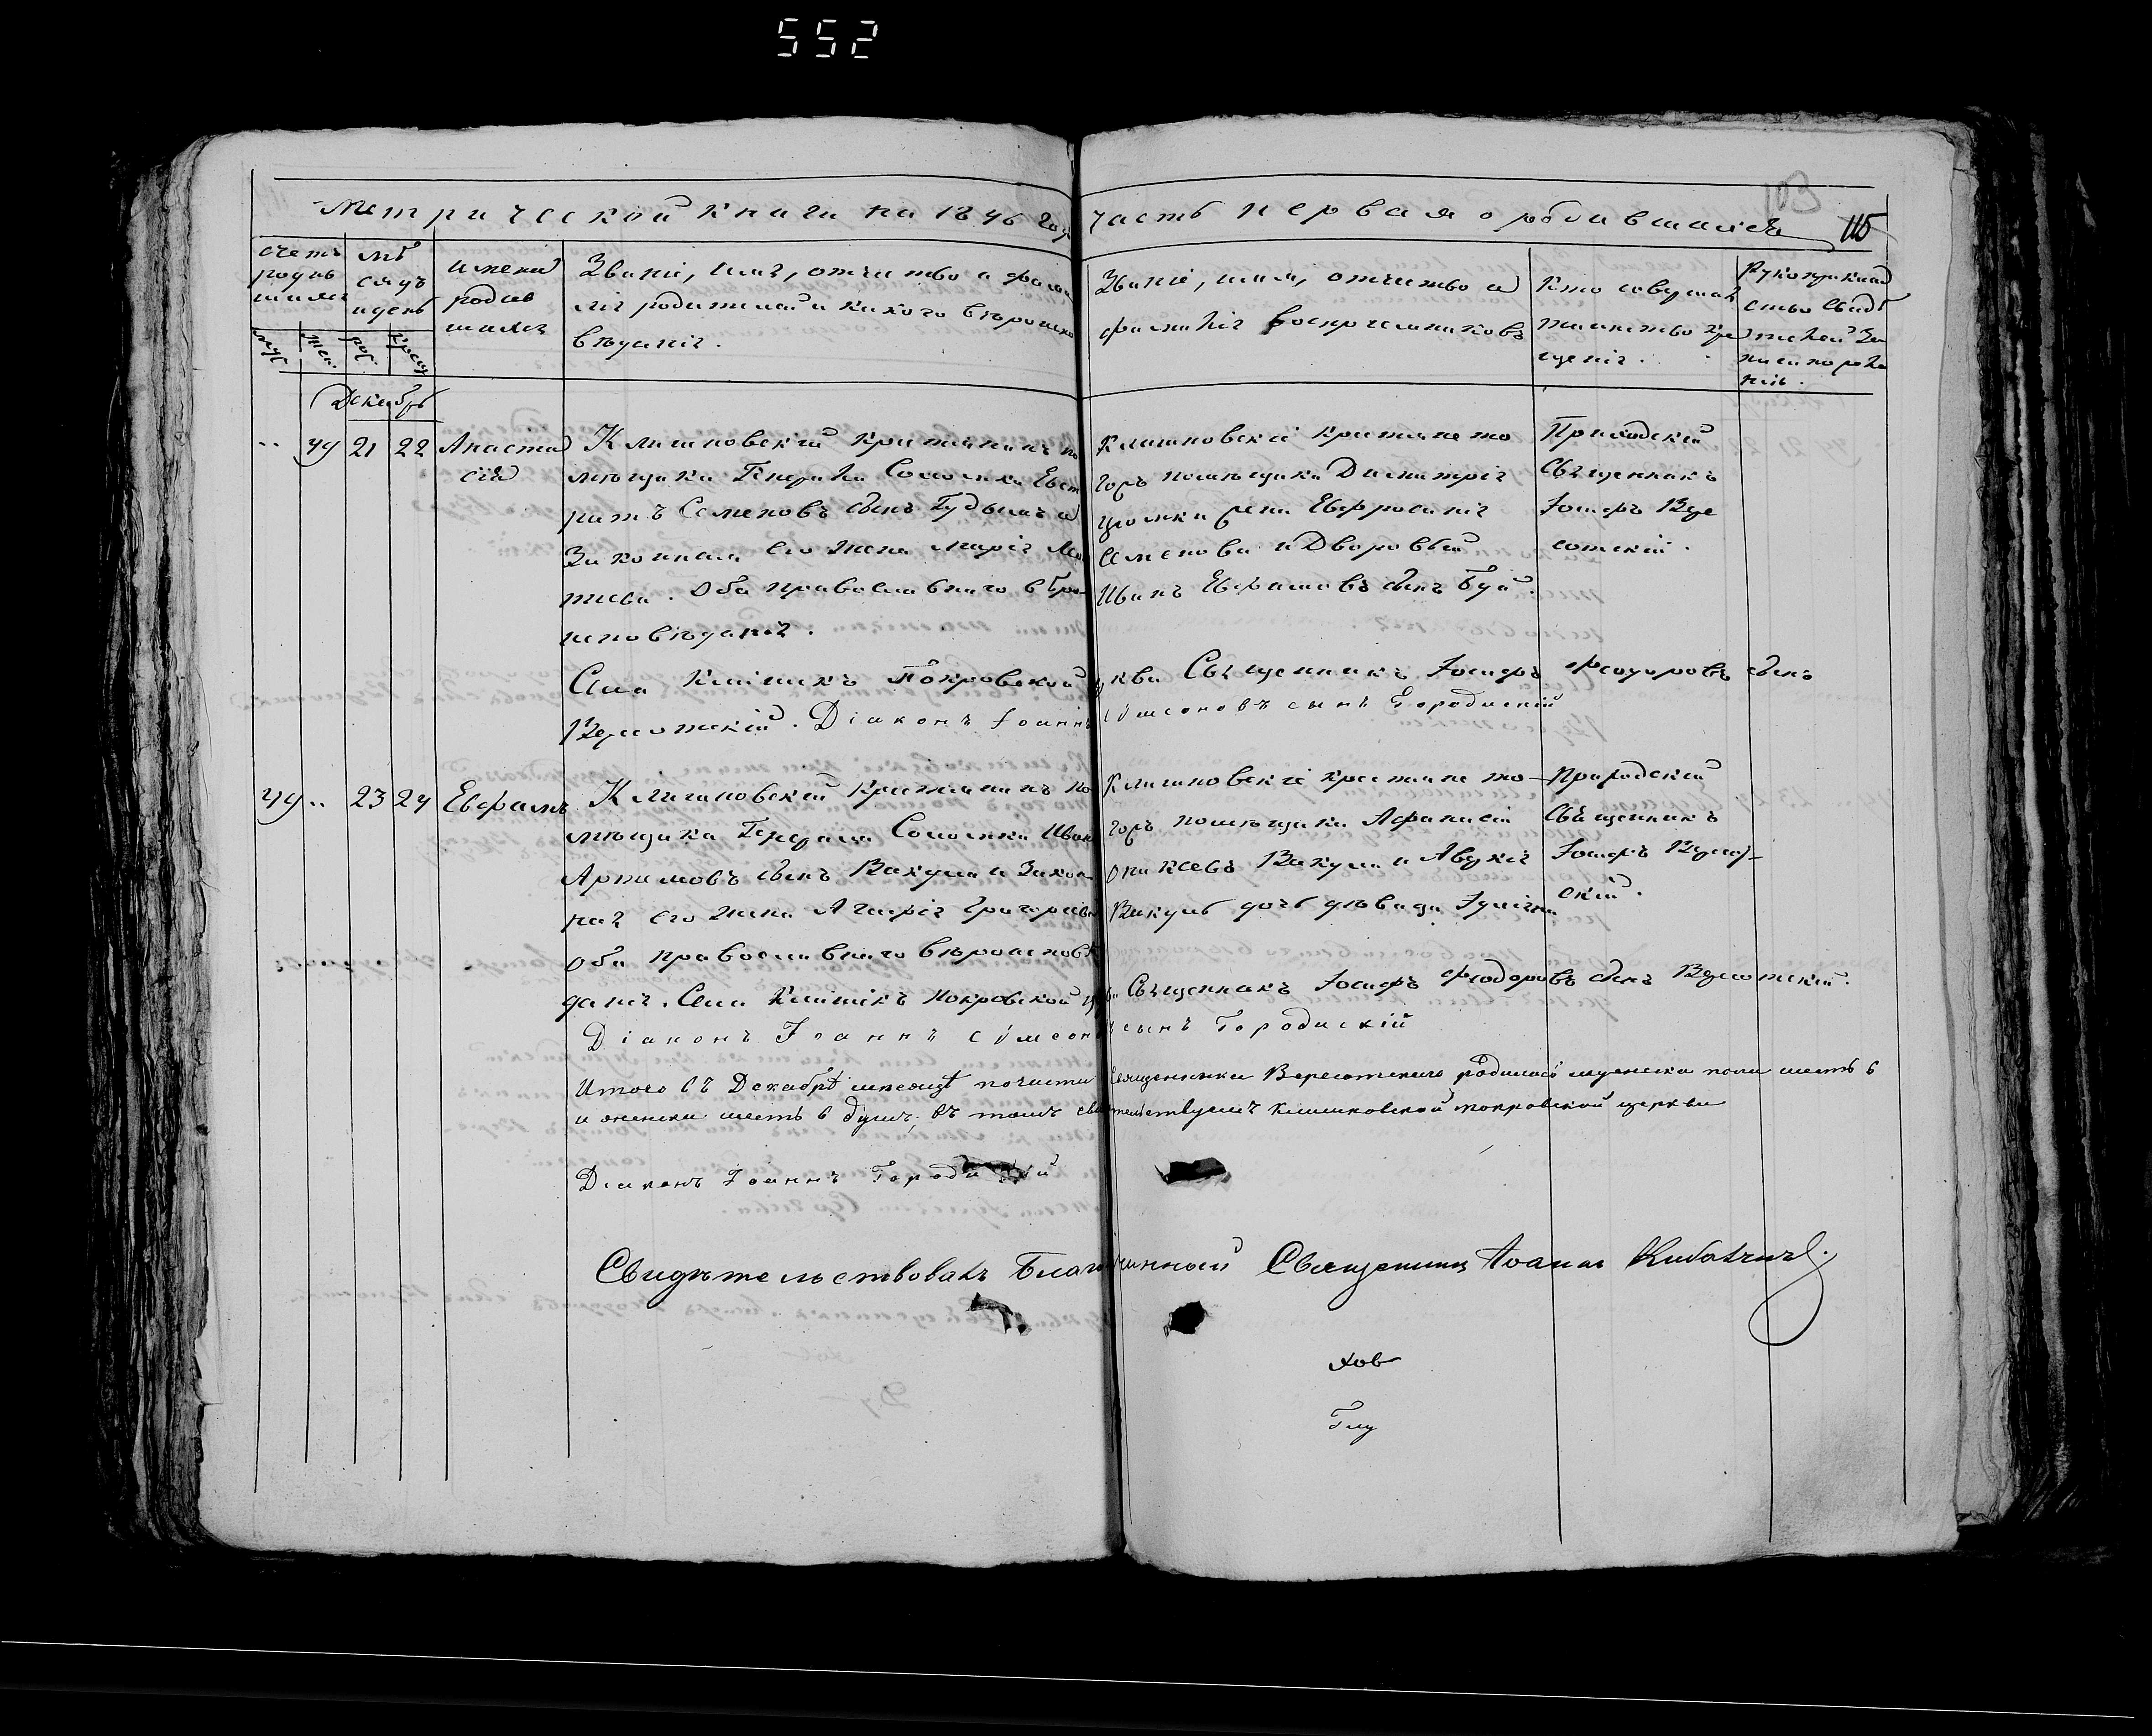 552
103
Метрической книги на 1846 годъ часть первая о родившихся 115
счетъ родив шихся
мѣ сяцъ и день
имена родив шихся
Званіе, имя, отчество и фами
лія родителей и какого вѣроиспо
вѣданія.
Званіе, имя, отчество и
фамилія воспріемниковъ
Кто совершалъ
таинство кре
щенія.
Рукоприклад
ство свидѣ
телей за
писи по жела
нію.
муж. жен. рож. крещ.
Декабрь
44 21 22 Анаста
сія
Клишковскій крестьянинъ по
мѣщика Генрала Соломки Евст
рат ъ Семеновъ сынъ и
Законная его жена Марія
Оба православнаго вѣро
исповѣданія.
Клишковскіе крестьяне то
горъ помѣщика Димитрія
жена Евфросинія
Семенова и Дворовый
Иванъ Ефремовъ сынъ Буй.
Приходскій
Священникъ
Іосифъ Вере
сотскій.
Села Клишекъ Покровской цркви Священникъ Іосифъ Феодоровъ сынъ
Вересотскій. Діаконъ Іоаннъ Сѵмеоновъ сынъ Городискій
44 23 24 Ефремъ
Клишковскій крестьянинъ по
мѣщика Генерала Соломки Иванъ
Артемовъ сынъ Вакула и Закон
ная его жена Григориева
Оба православнаго вѣроисповѣ
Клишковскіе крестьяне то
горъ помѣщика Афанасій
Вакула и
дочь дѣвица
Приходскій
Священникъ
Іосифъ Вересот
скій.
данія. Села Клишекъ Покровской цркви Священникъ Іосифъ Феодоровъ сынъ Вересотскій.
Діаконъ Іоаннъ Сѵмеоновъ сынъ Городискій
Итого въ Декабрѣ мѣсяцѣ по части Священника Вересотскаго родилось мужеска пола шесть 6
и женска шесть 6 душъ; въ томъ свидѣтельствуемъ Клишковской Покровской церкви
Діаконъ Іоаннъ Городискій
Свидѣтельствовалъ Благочинный Священникъ Іоаннъ Кибальчичъ.
хов
Глу